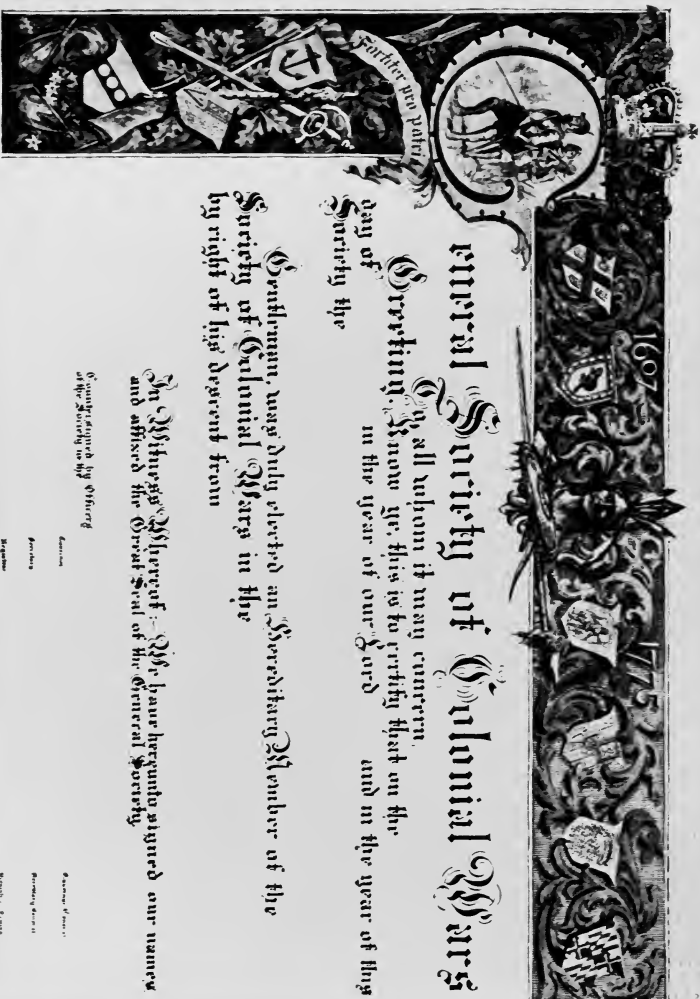 Fortiter pro patria
1607
1775
eneral Society of Colonial Wars
To, all whom it may concern,
Greeting. Know ye, this is to certify that on the
day of in the year of our Lord and in the year of this
Society the
Gentleman, was duly elected an Hereditary Member of the
Society of Colonial Wars in the
by right of his descent from
In Witness Whereof:- We have hereunto signed our names
and affixed the Great Seal of the General Society.
Countersigned by Officers
of the Society in the
Governor
Secretary
Registrar
Governor General
Secretary General